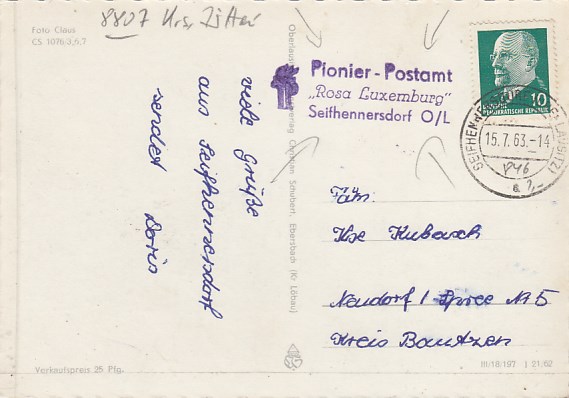 8807 Krs. Zittau
Foto Claus
CS 1076/3,6,7
viele Grüße
aus Seifhennersdorf
sendet Doris
Verkaufspreis 25 Pfg.
Verlag Christian Schubert, Ebersbach (Kr. Löbau)
Pionier-Postamt
„Rosa Luxemburg"
Seifhennersdorf O/L
10
DEUTSCHE
DEMOKRATISCHE REPUBLIK
15.7.63.-14
Fam.
Neudorf / Spree Nr 5
Kreis Bautzen
III/18/197 J 21/62